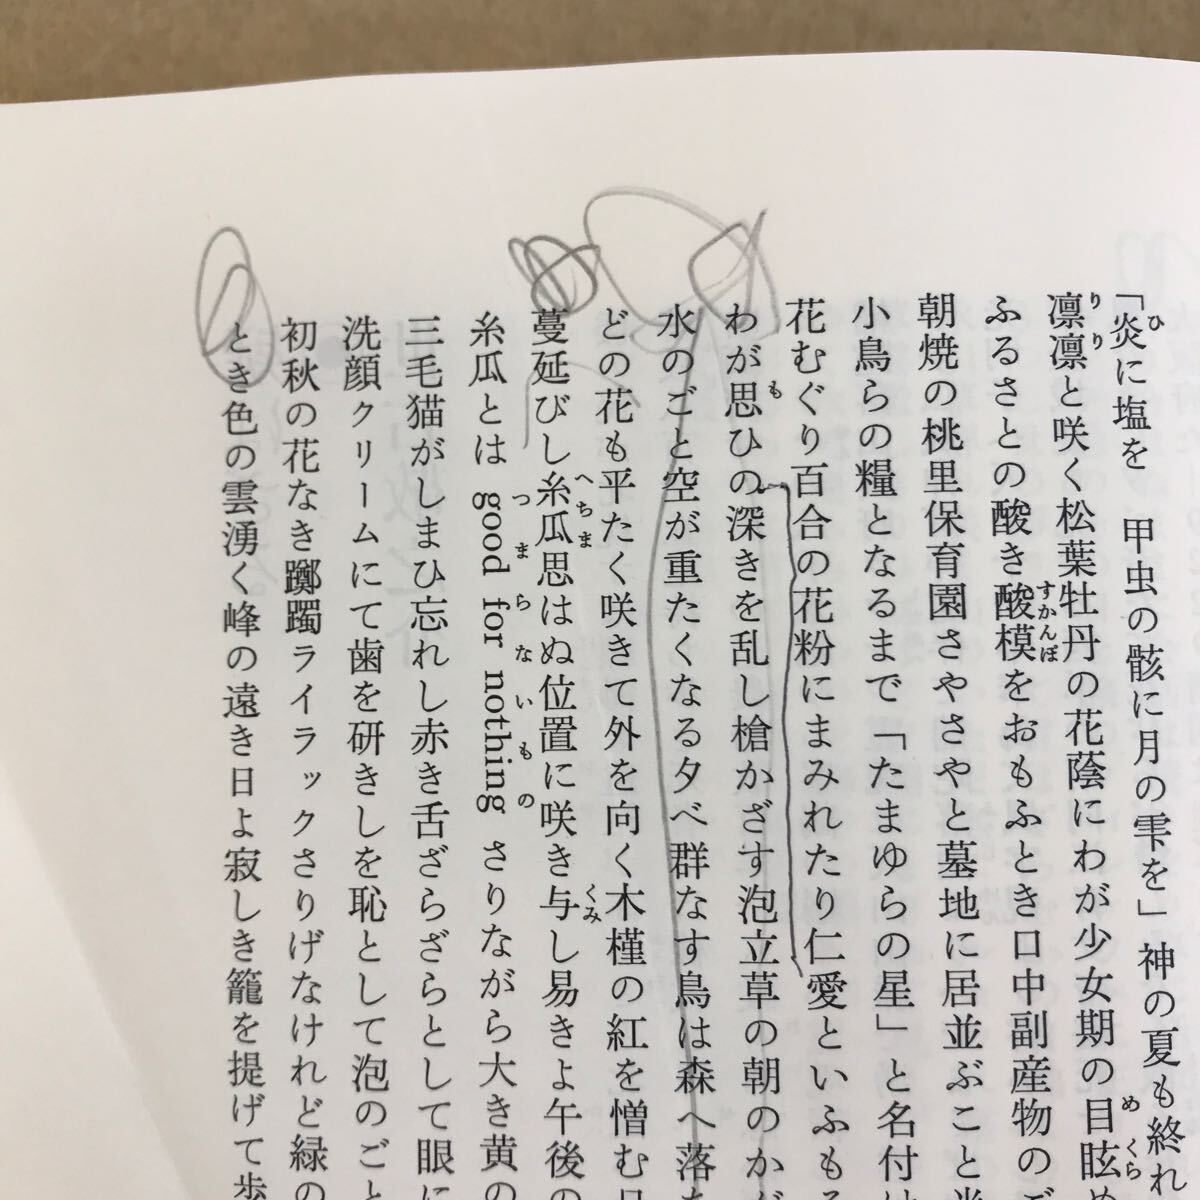 「炎に塩を　甲虫の骸に月の雫を」神の夏も終れ
凛凛と咲く松葉牡丹の花蔭にわが少女期の目眩め
ふるさとの酸き酸模をおもふとき口中副産物のご
朝焼の桃里保育園さやさやと墓地に居並ぶこと
小鳥らの糧となるまで「たまゆらの星」と名付け
花むぐり百合の花粉にまみれたり仁愛といふも
わが思ひの深きを乱し槍かざす泡立草の朝のかが
水のごと空が重たくなる夕べ群なす鳥は森へ落
どの花も平たく咲きて外を向く木槿の紅を憎む
蔓延びし糸瓜思はぬ位置に咲き与し易きよ午後の
糸瓜とは good for nothing さりながら大き黄の
三毛猫がしまひ忘れし赤き舌ざらざらとして眼に
洗顔クリームにて歯を研きしを恥として泡のごと
初秋の花なき躑躅ライラックさりげなけれど緑の
とき色の雲湧く峰の遠き日よ寂しき籠を提げて歩